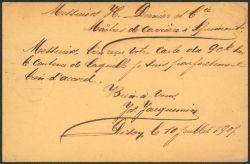 Messieurs H. Dernier et Cie
Maîtres de carrière à Sprimont
Messieurs, J'ai reçu votre carte du 9 ct
contenu de laquelle je suis parfaitement
bien d'accord.
Bien à vous
Jos Jacquemin
le 10 juillet 1907